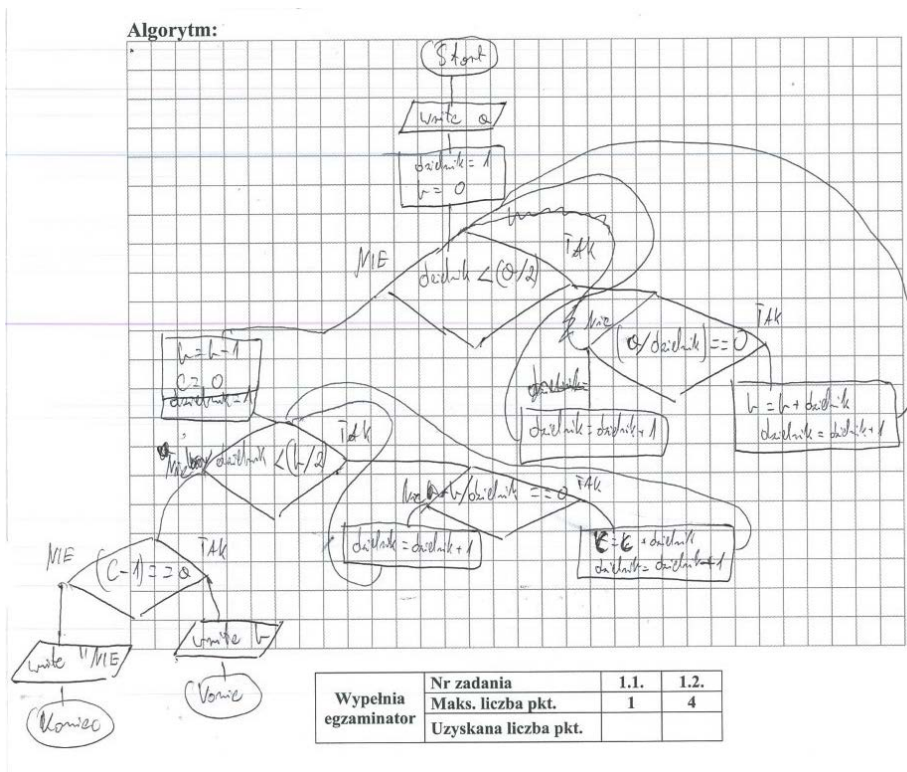 Algorytm:
Start
write a
dzielnik = 1
b = 0
NIE
dzielnik < (a/2)
TAK
NIE
(a/dzielnik) == 0
TAK
b = b-1
C = 0
dzielnik = 1
dzielnik = dzielnik + 1
b = b + dzielnik
dzielnik = dzielnik + 1
Nie
dzielnik < (b/2
TAK
b/dzielnik == 0
TAK
dzielnik = dzielnik + 1
C = C + dzielnik
dzielnik = dzielnik + 1
NIE
(C-1) == a
TAK
write "NIE
write b
Koniec
Koniec
Wypełnia egzaminator
Nr zadania 1.1. 1.2.
Maks. liczba pkt. 1 4
Uzyskana liczba pkt.